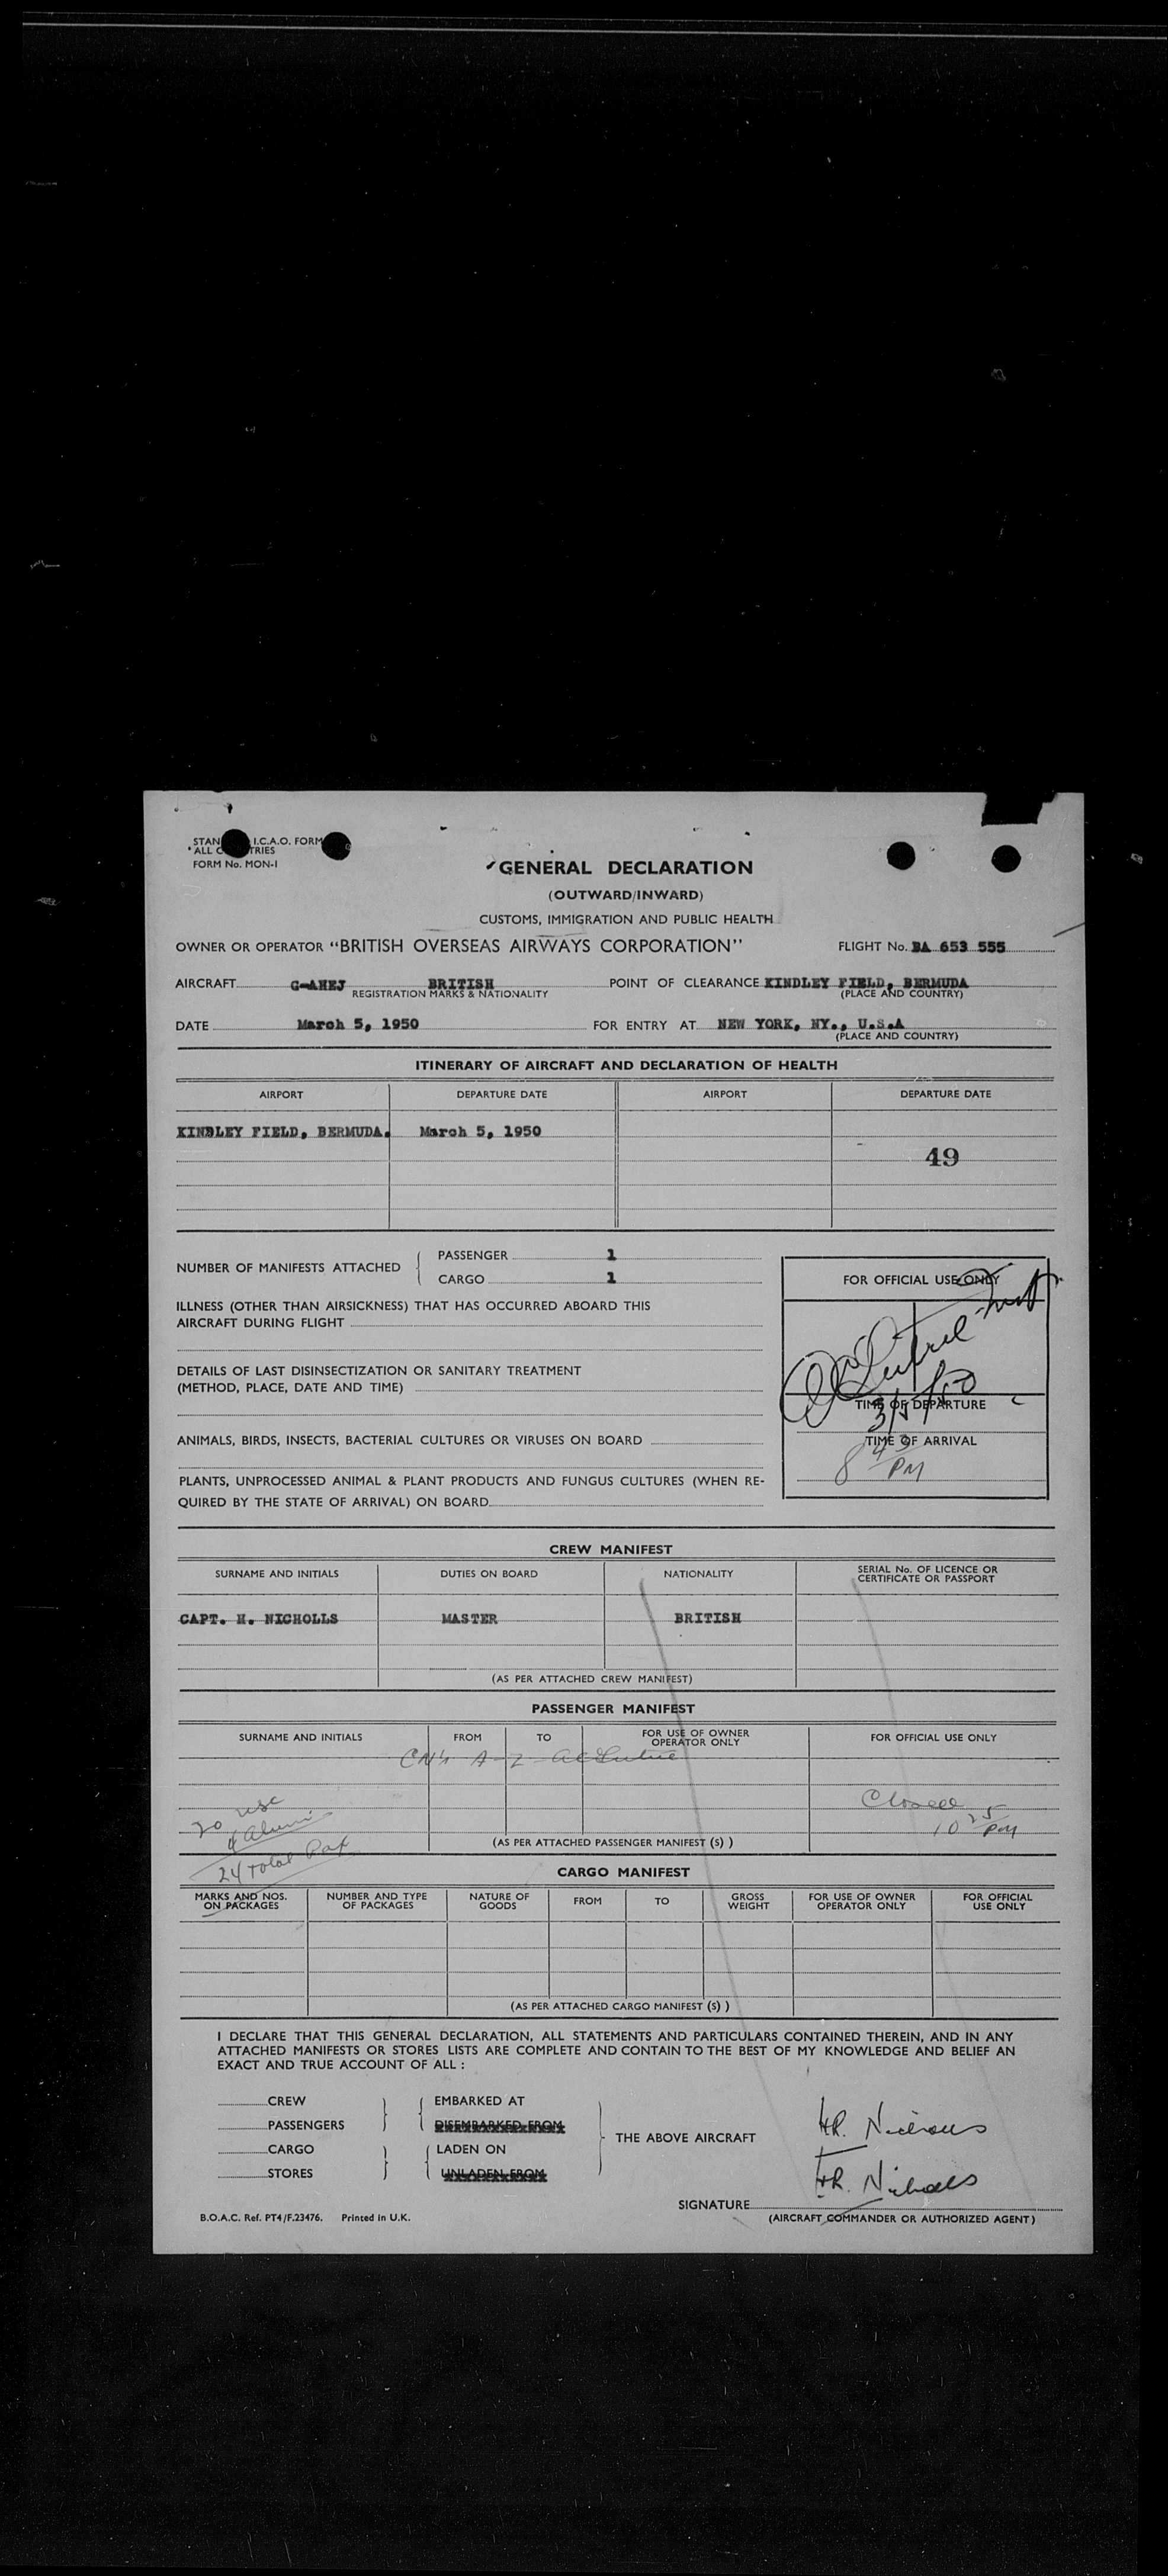 STAN I.C.A.O. FORM
ALL C TRIES
FORM No. MON-I
GENERAL DECLARATION
(OUTWARD/INWARD)
CUSTOMS, IMMIGRATION AND PUBLIC HEALTH
OWNER OR OPERATOR "BRITISH OVERSEAS AIRWAYS CORPORATION" FLIGHT No. BA 653 555
AIRCRAFT G-AHEJ BRITISH POINT OF CLEARANCE KINDLEY FIELD, BERMUDA
REGISTRATION MARKS & NATIONALITY (PLACE AND COUNTRY)
DATE March 5, 1950 FOR ENTRY AT NEW YORK, NY., U.S.A
(PLACE AND COUNTRY)
ITINERARY OF AIRCRAFT AND DECLARATION OF HEALTH
AIRPORT DEPARTURE DATE AIRPORT DEPARTURE DATE
KINDLEY FIELD, BERMUDA. March 5, 1950
49
NUMBER OF MANIFESTS ATTACHED
PASSENGER 1
CARGO 1
FOR OFFICIAL USE ONLY
ILLNESS (OTHER THAN AIRSICKNESS) THAT HAS OCCURRED ABOARD THIS
AIRCRAFT DURING FLIGHT
DETAILS OF LAST DISINSECTIZATION OR SANITARY TREATMENT
(METHOD, PLACE, DATE AND TIME)
3/5/50
TIME OF DEPARTURE
ANIMALS, BIRDS, INSECTS, BACTERIAL CULTURES OR VIRUSES ON BOARD
TIME OF ARRIVAL
8 43 PM
PLANTS, UNPROCESSED ANIMAL & PLANT PRODUCTS AND FUNGUS CULTURES (WHEN RE-
QUIRED BY THE STATE OF ARRIVAL) ON BOARD
CREW MANIFEST
SURNAME AND INITIALS DUTIES ON BOARD NATIONALITY SERIAL No. OF LICENCE OR
CERTIFICATE OR PASSPORT
CAPT. H. NICHOLLS MASTER BRITISH
(AS PER ATTACHED CREW MANIFEST)
PASSENGER MANIFEST
SURNAME AND INITIALS FROM TO FOR USE OF OWNER
OPERATOR ONLY FOR OFFICIAL USE ONLY
Closed
10 25 PM
20 usc
4 Aliens
24 Total Pax
(AS PER ATTACHED PASSENGER MANIFEST (S) )
CARGO MANIFEST
MARKS AND NOS.
ON PACKAGES NUMBER AND TYPE
OF PACKAGES NATURE OF
GOODS FROM TO GROSS
WEIGHT FOR USE OF OWNER
OPERATOR ONLY FOR OFFICIAL
USE ONLY
(AS PER ATTACHED CARGO MANIFEST (S) )
I DECLARE THAT THIS GENERAL DECLARATION, ALL STATEMENTS AND PARTICULARS CONTAINED THEREIN, AND IN ANY
ATTACHED MANIFESTS OR STORES LISTS ARE COMPLETE AND CONTAIN TO THE BEST OF MY KNOWLEDGE AND BELIEF AN
EXACT AND TRUE ACCOUNT OF ALL :
CREW EMBARKED AT
PASSENGERS DISEMBARKED FROM
CARGO LADEN ON
STORES UNLADEN FROM
THE ABOVE AIRCRAFT
HR. Nicholls
HR. Nicholls
SIGNATURE
(AIRCRAFT COMMANDER OR AUTHORIZED AGENT)
B.O.A.C. Ref. PT4/F.23476. Printed in U.K.